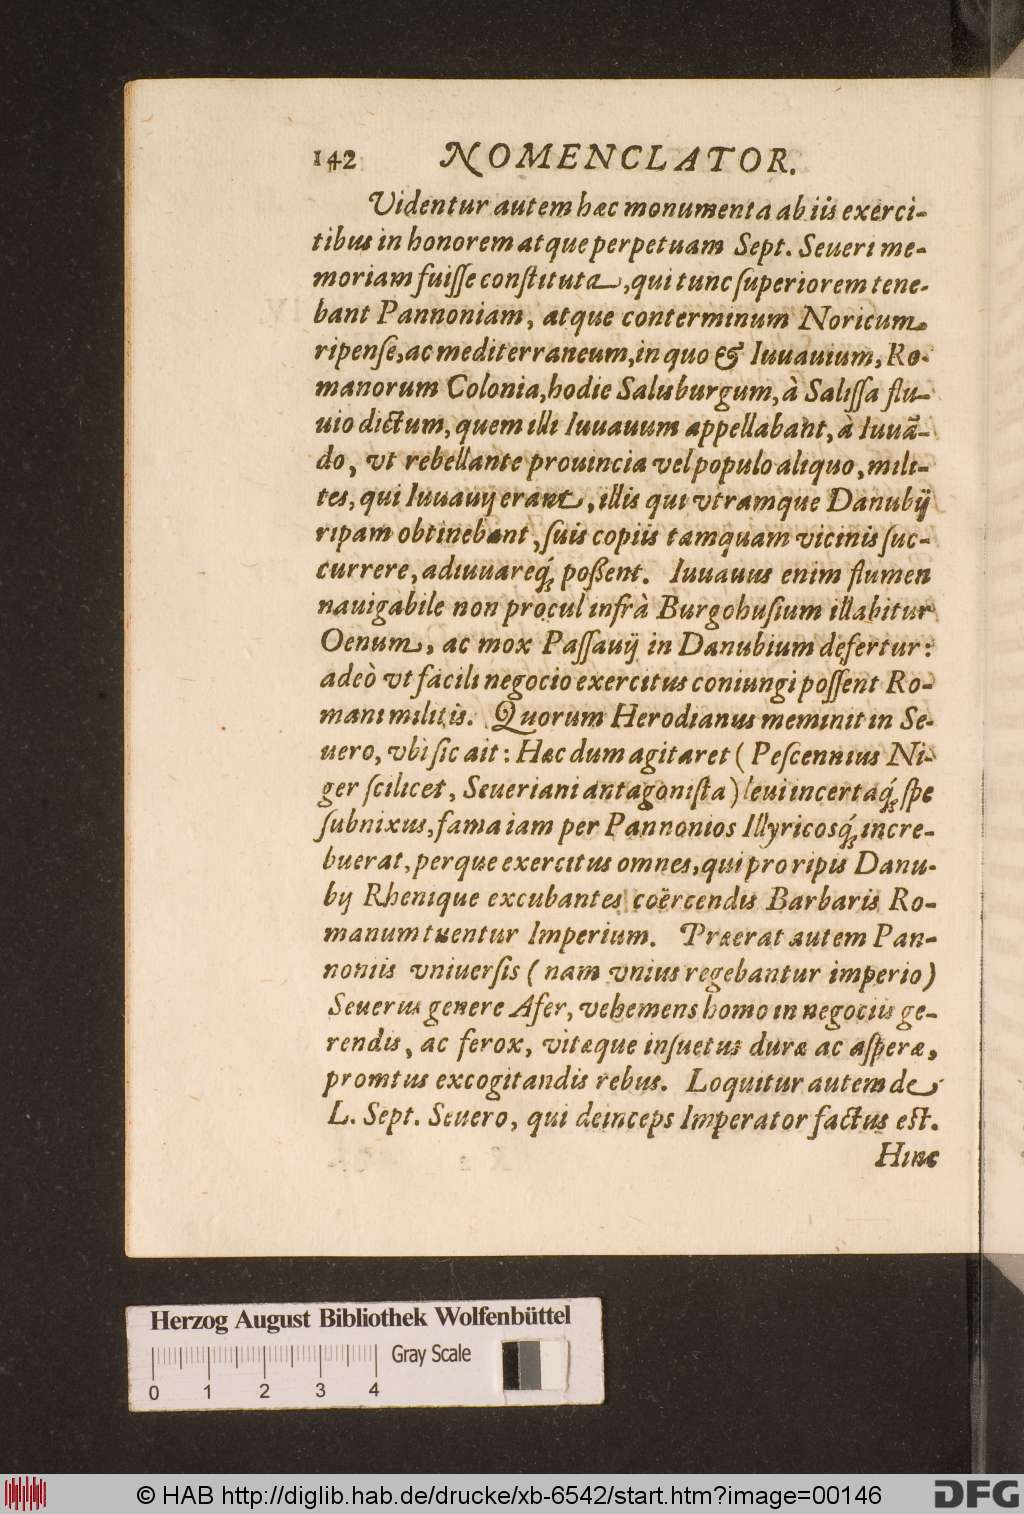 142 NOMENCLATOR.
Videntur autem hæc monumenta ab iis exerci-
tibus in honorem atque perpetuam Sept. Seueri me-
moriam fuiſſe conſtituta, qui tunc ſuperiorem tene-
bant Pannoniam, atque conterminum Noricum
ripenſe, ac mediterraneum, in quo & Iuuauium, Ro-
manorum Colonia, hodie Salisburgum, à Saliſſa flu-
uio dictum, quem illi Iuuauum appellabant, à Iuuā-
do, vt rebellante prouincia vel populo aliquo, mili-
tes, qui Iuuauij erant, illis qui vtramque Danubij
ripam obtinebant, ſuis copiis tamquam vicinis ſuc-
currere, adiuuareq́; poßent. Iuuauus enim flumen
nauigabile non procul infrà Burgohuſium illabitur
Oenum, ac mox Paſſauij in Danubium defertur:
adeò vt facili negocio exercitus coniungi poſſent Ro-
mani militis. Quorum Herodianus meminit in Se-
uero, vbi ſic ait: Hæc dum agitaret (Peſcennius Ni-
ger ſcilicet, Seueriani antagoniſta) leui incertaq́; ſpe
ſubnixus, fama iam per Pannonios Illyricosq́; incre-
buerat, perque exercitus omnes, qui pro ripis Danu-
bij Rhenique excubantes coërcendis Barbaris Ro-
manum tuentur Imperium. Præerat autem Pan-
noniis vniuerſis (nam vnius regebantur imperio)
Seuerus genere Afer, vehemens homo in negociis ge-
rendis, ac ferox, vitæque inſuetus duræ ac aſperæ,
promtus excogitandis rebus. Loquitur autem de
L. Sept. Seuero, qui deinceps Imperator factus eſt.
Hinc
Herzog August Bibliothek Wolfenbüttel
Gray Scale
0 1 2 3 4
© HAB http://diglib.hab.de/drucke/xb-6542/start.htm?image=00146
DFG